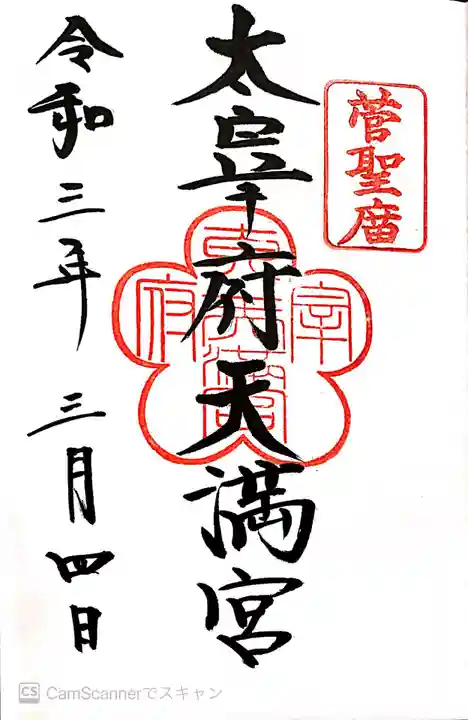 菅聖庿
太宰府天満宮
令和三年 三月四日
CS CamScannerでスキャン